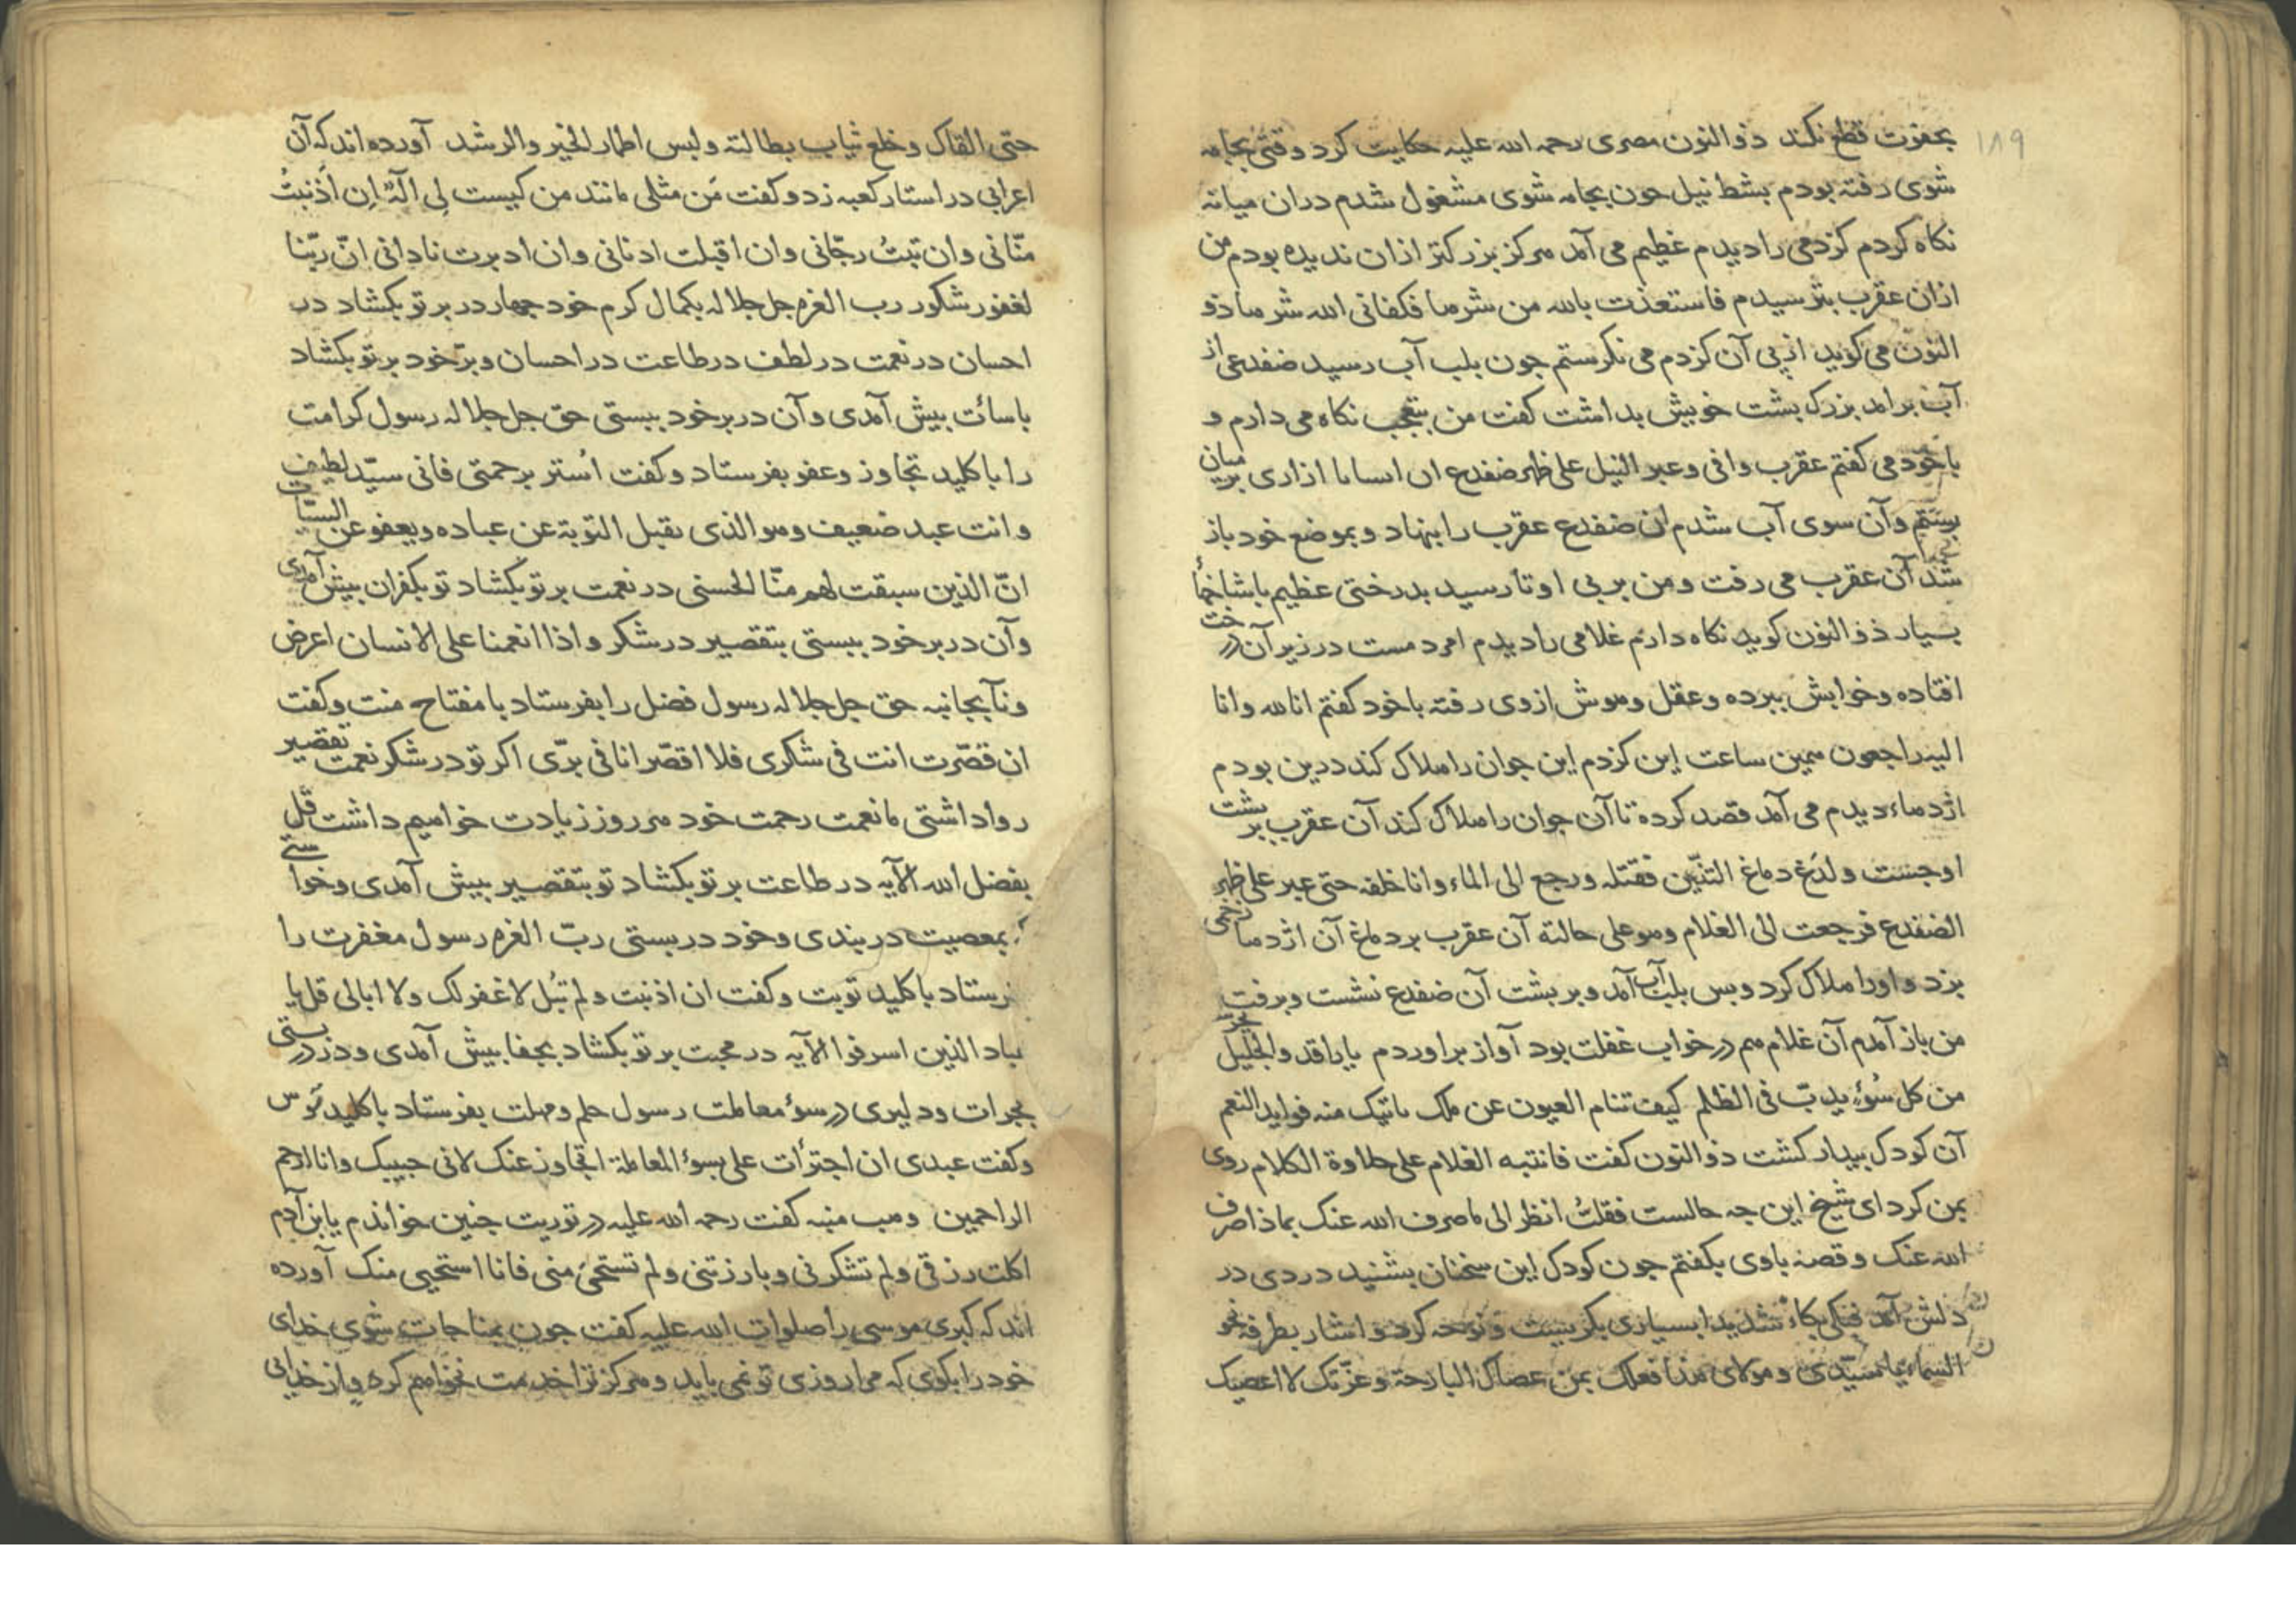 ۱۸۹
بجفوت قطع نکند ذو النون مصری رحمه الله علیه حکایت کرد وقتی بجامه
شوی رفته بودم بشط نیل جون بجامه شوی مشغول شدم دران میانه
نکاه کردم کزدمی را دیدم عظیم می آمد هرکز بزرکتر ازان ندیده بودم من
ازان عقرب بترسیدم فاستعذت بالله من شرها فکفانی الله شرها ذو
النون می کوید از پی آن کزدم می نکرستم جون بلب آب رسید ضفدعی از
آب برامد بزرک بشت خویش بداشت کفت من بتعجب نکاه می دارم و
باخود می کفتم عقرب وافی وعبر النیل علی ظهر ضفدع ازاری برمیان
ببستم وآن سوی آب شدم ان ضفدع عقرب را بنهاد وبموضع خود باز
شد آن عقرب می رفت ومن بر پی او تا رسید بدرختی عظیم باشاخها
بسیار ذو النون کوید نکاه دارم غلامی را دیدم امرد مست در زیر آن درخت
افتاده وخوابش ببرده وعقل وهوش ازوی رفته باخود کفتم انا لله وانا
الیه راجعون همین ساعت این کزدم این جوان را هلاک کند درین بودم
اژدهاء دیدم می آمد قصد کرده تا آن جوان را هلاک کند آن عقرب بر بشت
او جست ولدغ دماغ التنین فقتله ورجع الی الماء وانا خلفه حتی عبر علی ظهر
الضفدع فرجعت الی الغلام وهو علی حالته آن عقرب بر دماغ آن اژدها زخمی
بزد واورا هلاک کرد وبس بلب آب آمد وبر بشت آن ضفدع نشست وبرفت
من باز آمدم آن غلام هم در خواب غفلت بود آواز براوردم یا راقد والجلیل یحرسه
من کل سُوءٍ یدبّ فی الظلم کیف تنام العیون عن ملک یاتیک منه فواید النعم
آن کودک بیدار کشت ذو النون کفت فانتبه الغلام علی حلاوة الکلام روی
بمن کرد ای شیخ این جه حالست فقلتُ انظر الی ما صرف الله عنک بماذا صرف
الله عنک وقصه باوی بکفتم جون کودک این سخنان بشنید دردی در
دلش آمد فبکی بکاءً شدیدا بسیاری بکریست ونوحه کرد واشار بطرفه نحو
السماء یا سیّدی ومولای هذا فعلک بمن عصاک البارحة وعزّتک لا اعصیک
حتی القاک وخلع ثیاب بطالته ولبس اطمار الخیر والرشد آورده اند که آن
اعرابی در استار کعبه زد وکفت مَن مثلی مانند من کیست لی الٓهٌ اِن اَذنبتُ
منّانی وان تبتُ رجّانی وان اقبلت ادنانی وان ادبرت نادانی انّ ربّنا
لغفور شکور رب العزه جل جلاله بکمال کرم خود جهار در بر تو بکشاد در
احسان در نعمت در لطف در طاعت در احسان وبرّ خود بر تو بکشاد
باسائت بیش آمدی وآن در بر خود ببستی حق جل جلاله رسول کرامت
را با کلید تجاوز وعفو بفرستاد وکفت اُستر برحمتی فانی سیّد لطیف
وانت عبد ضعیف وهو الذی یقبل التوبة عن عباده ویعفو عن السیّات
انّ الذین سبقت لهم منّا الحسنی در نعمت بر تو بکشاد تو بکفران بیش آمدی
وآن در بر خود ببستی بتقصیر در شکر واذا انعمنا علی الانسان اعرض
ونآ بجانبه حق جل جلاله رسول فضل را بفرستاد با مفتاح منت وکفت
ان قصّرت انت فی شکری فلا اقصّر انا فی برّی اکر تو در شکر نعمت تقصیر
روا داشتی ما نعمت رحمت خود هر روز زیادت خواهیم داشت قل
بفضل الله الآیه در طاعت بر تو بکشاد تو بتقصیر بیش آمدی وخواستی
که بمعصیت در بندی وخود در بستی ربّ العزه رسول مغفرت را
فرستاد با کلید توبت وکفت ان اذنبت ولم تُبل لاغفر لک ولا ابالی قل یا
عباد الذین اسرفوا الآیه در محبت بر تو بکشاد بجفا بیش آمدی ودر در بستی
بجرات ودلیری در سوء معاملت رسول حلم ومهلت بفرستاد با کلید
وکفت عبدی ان اجترأت علی بسوء المعاملة اتجاوز عنک لانی حبیبک وانا ارحم
الراحمین وهب منبه کفت رحمه الله علیه در توریت جنین خواندم یا بن آدم
اکلت رزقی ولم تشکرنی وبارزتنی ولم تستحیَ منی فانا استحیی منک آورده
اند که کبری موسی را صلوات الله علیه کفت جون بمناجات شوی خدای
خود را بکوی که مرا روزی تو نمی باید وهرکز ترا خدمت نخواهم کرد واز خدایی